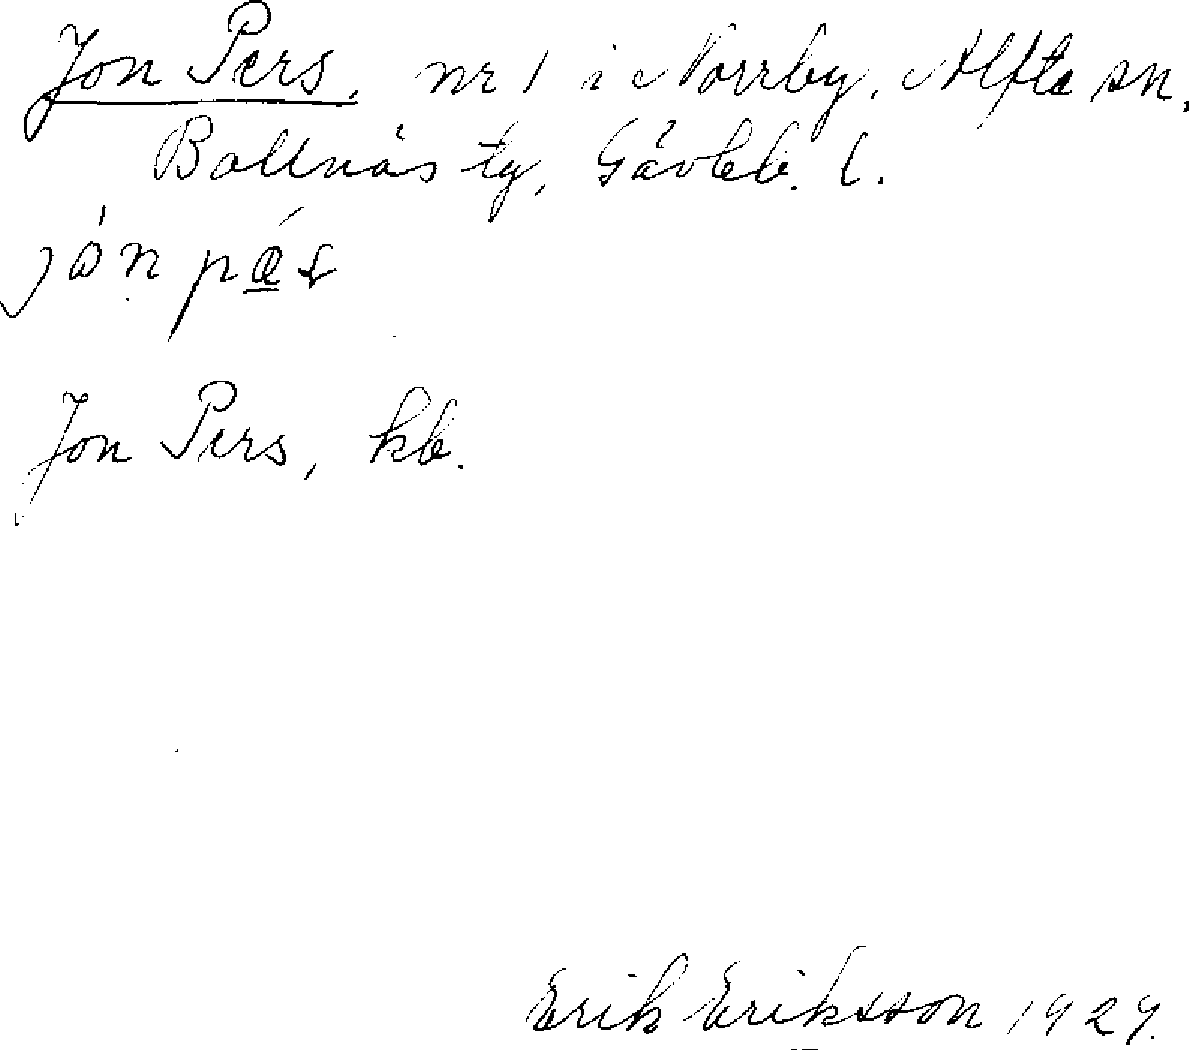 Jon Pers, nr 1 i Norrby, Alfta sn,
Bollnäs tg, Gävleb. l.
Jon Pers, kb.
Erik Eriksson 1929.